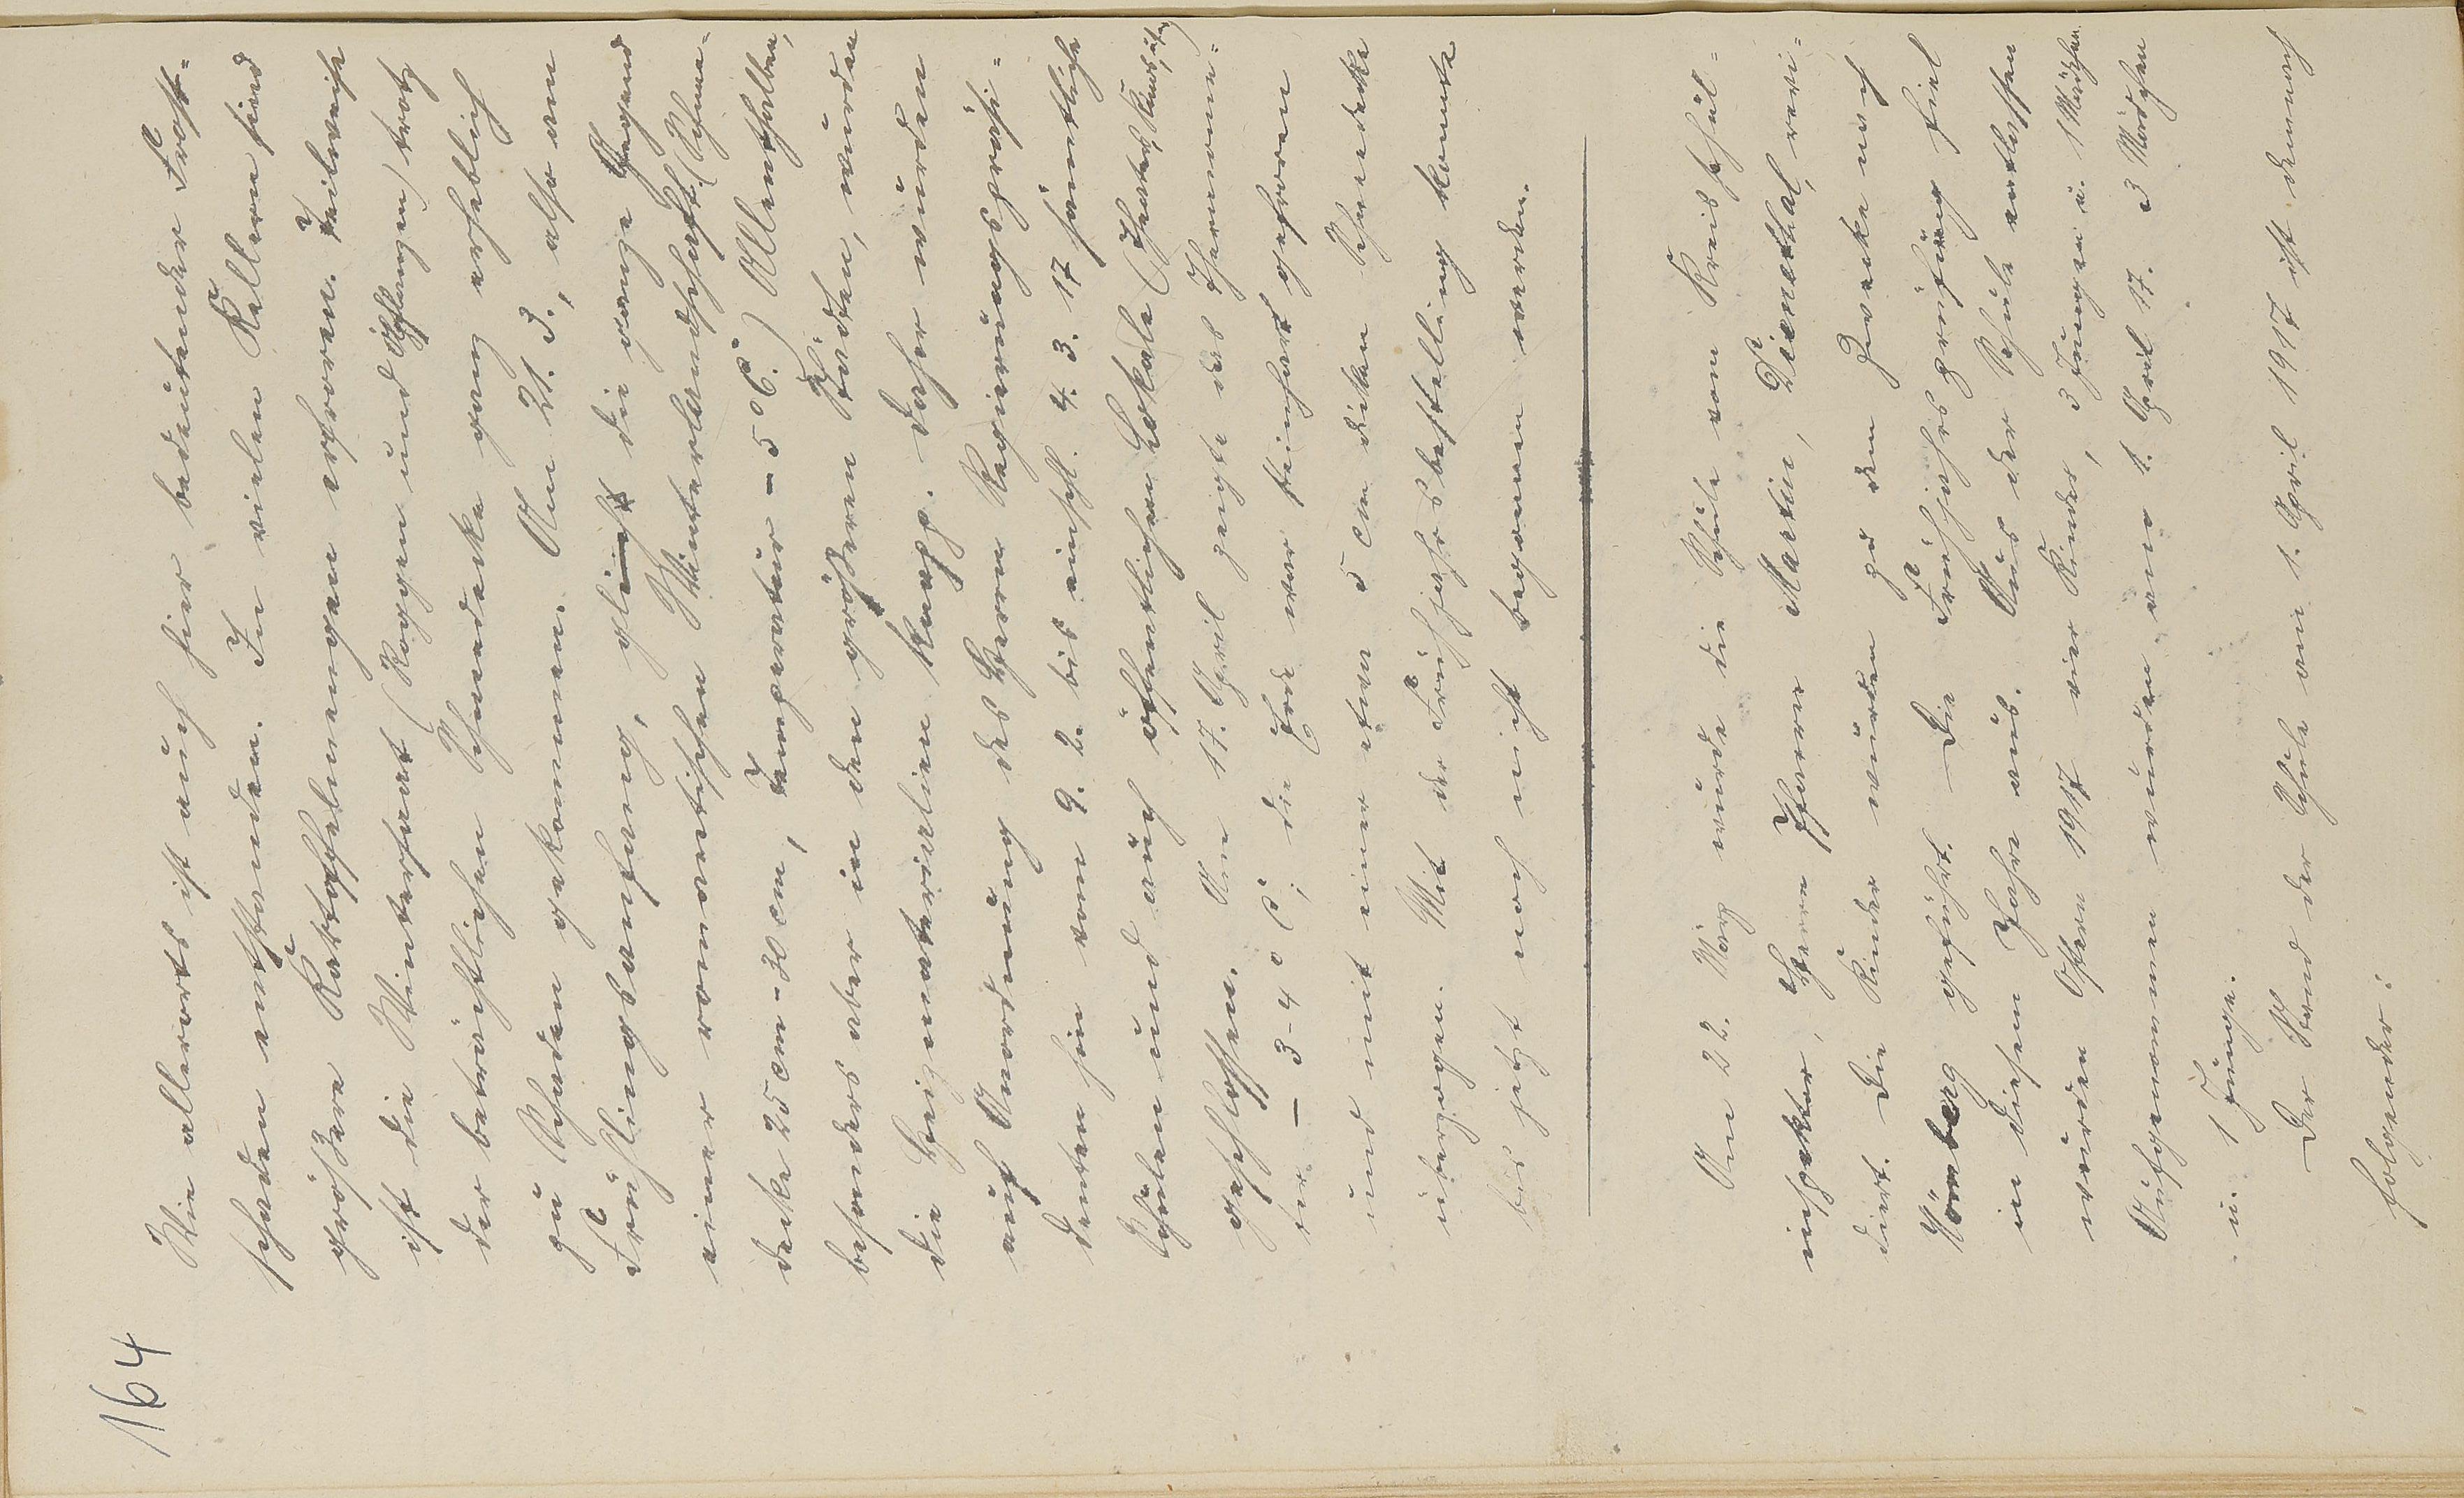 164
Wie allerorts ist auch hier bedeutender Frost-
schaden entstanden. In vielen Kellern sind
größere Kartoffelmengen erfroren. Teilweise
ist die Wintersaat (Roggen und Öpflanzen) trotz
der beträchtlichen Schneedecke ganz erheblich
zu Schaden gekommen. Am 21. 3., also am
Frühlingsanfang, glich die ganze Gegend
einer romantischen Winterlandschaft. (Schnee-
decke 25 cm - 30 cm, Temperatur - 5° C.) Allenthalben,
besonders aber in den größeren Städten, wurden
die Heizmaterialien knapp. Daher wurden
auf Anordnung des Herrn Regierungspräsi-
denten hin vom 9. 2. bis einschl. 4. 3. 17 sämtliche
Schulen und auch öffentlichen Lokale (Theater,
geschlossen. Am 17. April zeigte das Thermome-
ter - 3-4° C; die Erde war steinhart gefroren
und mit einer etwa 5 cm dicken Schneedecke
überzogen. Mit der Frühjahrsbestellung konnte
bis jetzt noch nicht begonnen werden.
Am 22. März wurde die Schule vom Kreisschul-
inspektor, Herrn Pfarrer Martin, Dienethal, revi-
diert. Die Kinder wurden zu dem Zwecke nach
Hömberg geführt. Die Frühjahrsprüfung fiel
in diesem Jahre aus. Aus der Schule entlassen
wurden Ostern 1917 vier Kinder, 3 Jungen u. 1 Mädchen.
Aufgenommen wurden am 1. April 17. 3 Mädchen
u. 1 Junge.
Der Stand der Schule am 1. April 1917 ist demnach
folgender: